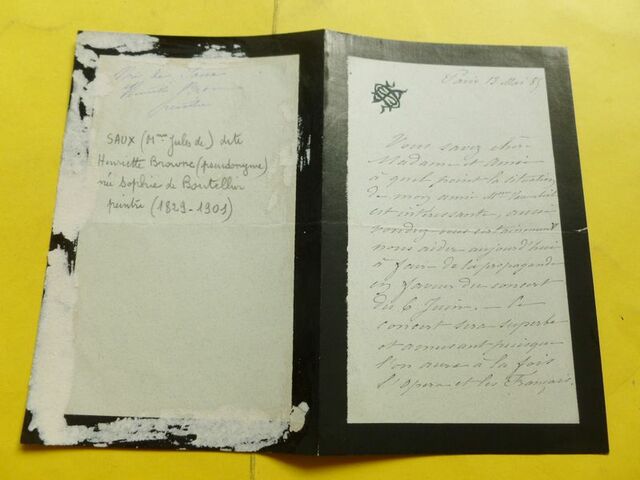 Mme de Saux
Henriette Browne
peintre
SAUX (Mme Jules de) dite
Henriette Browne (pseudonyme)
née Sophie de Boutellier
peintre (1829-1901)
Paris 13 Mai 85
Vous savez chère
Madame et amie
à quel point la situation
de mon amie Mme
est intéressante, aussi
voudrez vous certainement
nous aider aujourd'hui
à faire de la propagande
en faveur du concert
du 6 Juin. — Ce
concert sera superbe
et amusant puisque
l'on aura à la fois
l'Opera et les Français.